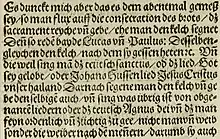 Es dunckt mich aber das es dem abentmal gemeß
sey / so man flux auff die consecration des brots / das
sacrament reyche vñ gebe / ehe man den kelch segnet
Denn so redē bayde Lucas vñ Paulus: Desselben
gleychen den kelch / nach dem sie gessen hetten ꝛc. Vn̄
die weil sing mā dz teutsch sanctus / odder dz lied / Got
sey gelobt / oder Johans Hussen lied Jesus Christus
vnser hailand Darnach segene man den kelch vn̄ ge
be den selbigē auch / vn̄ sing was vbrig ist von obge
nantē liedern / oder dz teutsch Agnus dei vn̄ dz man
feyn ordenlich vn̄ züchtig zů gee / nicht man vn̄ weib
sonder die weyber nach dē mēnern / darumb sy auch